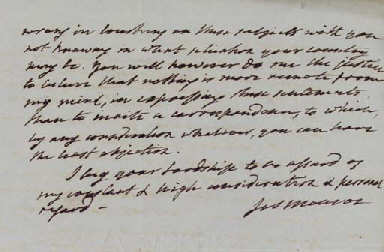 wrong in touching on these subjects with you
not knowing in what situation your country
may be. You will however do me the justice
to believe that nothing is more remote from
my mind, in expressing these sentiments,
than to invite a correspondence, to which,
by any consideration whatever, you can have
the least objection.
I beg your Lordship to be assured of
my constant & high consideration & personal
regard -
Jas Monroe